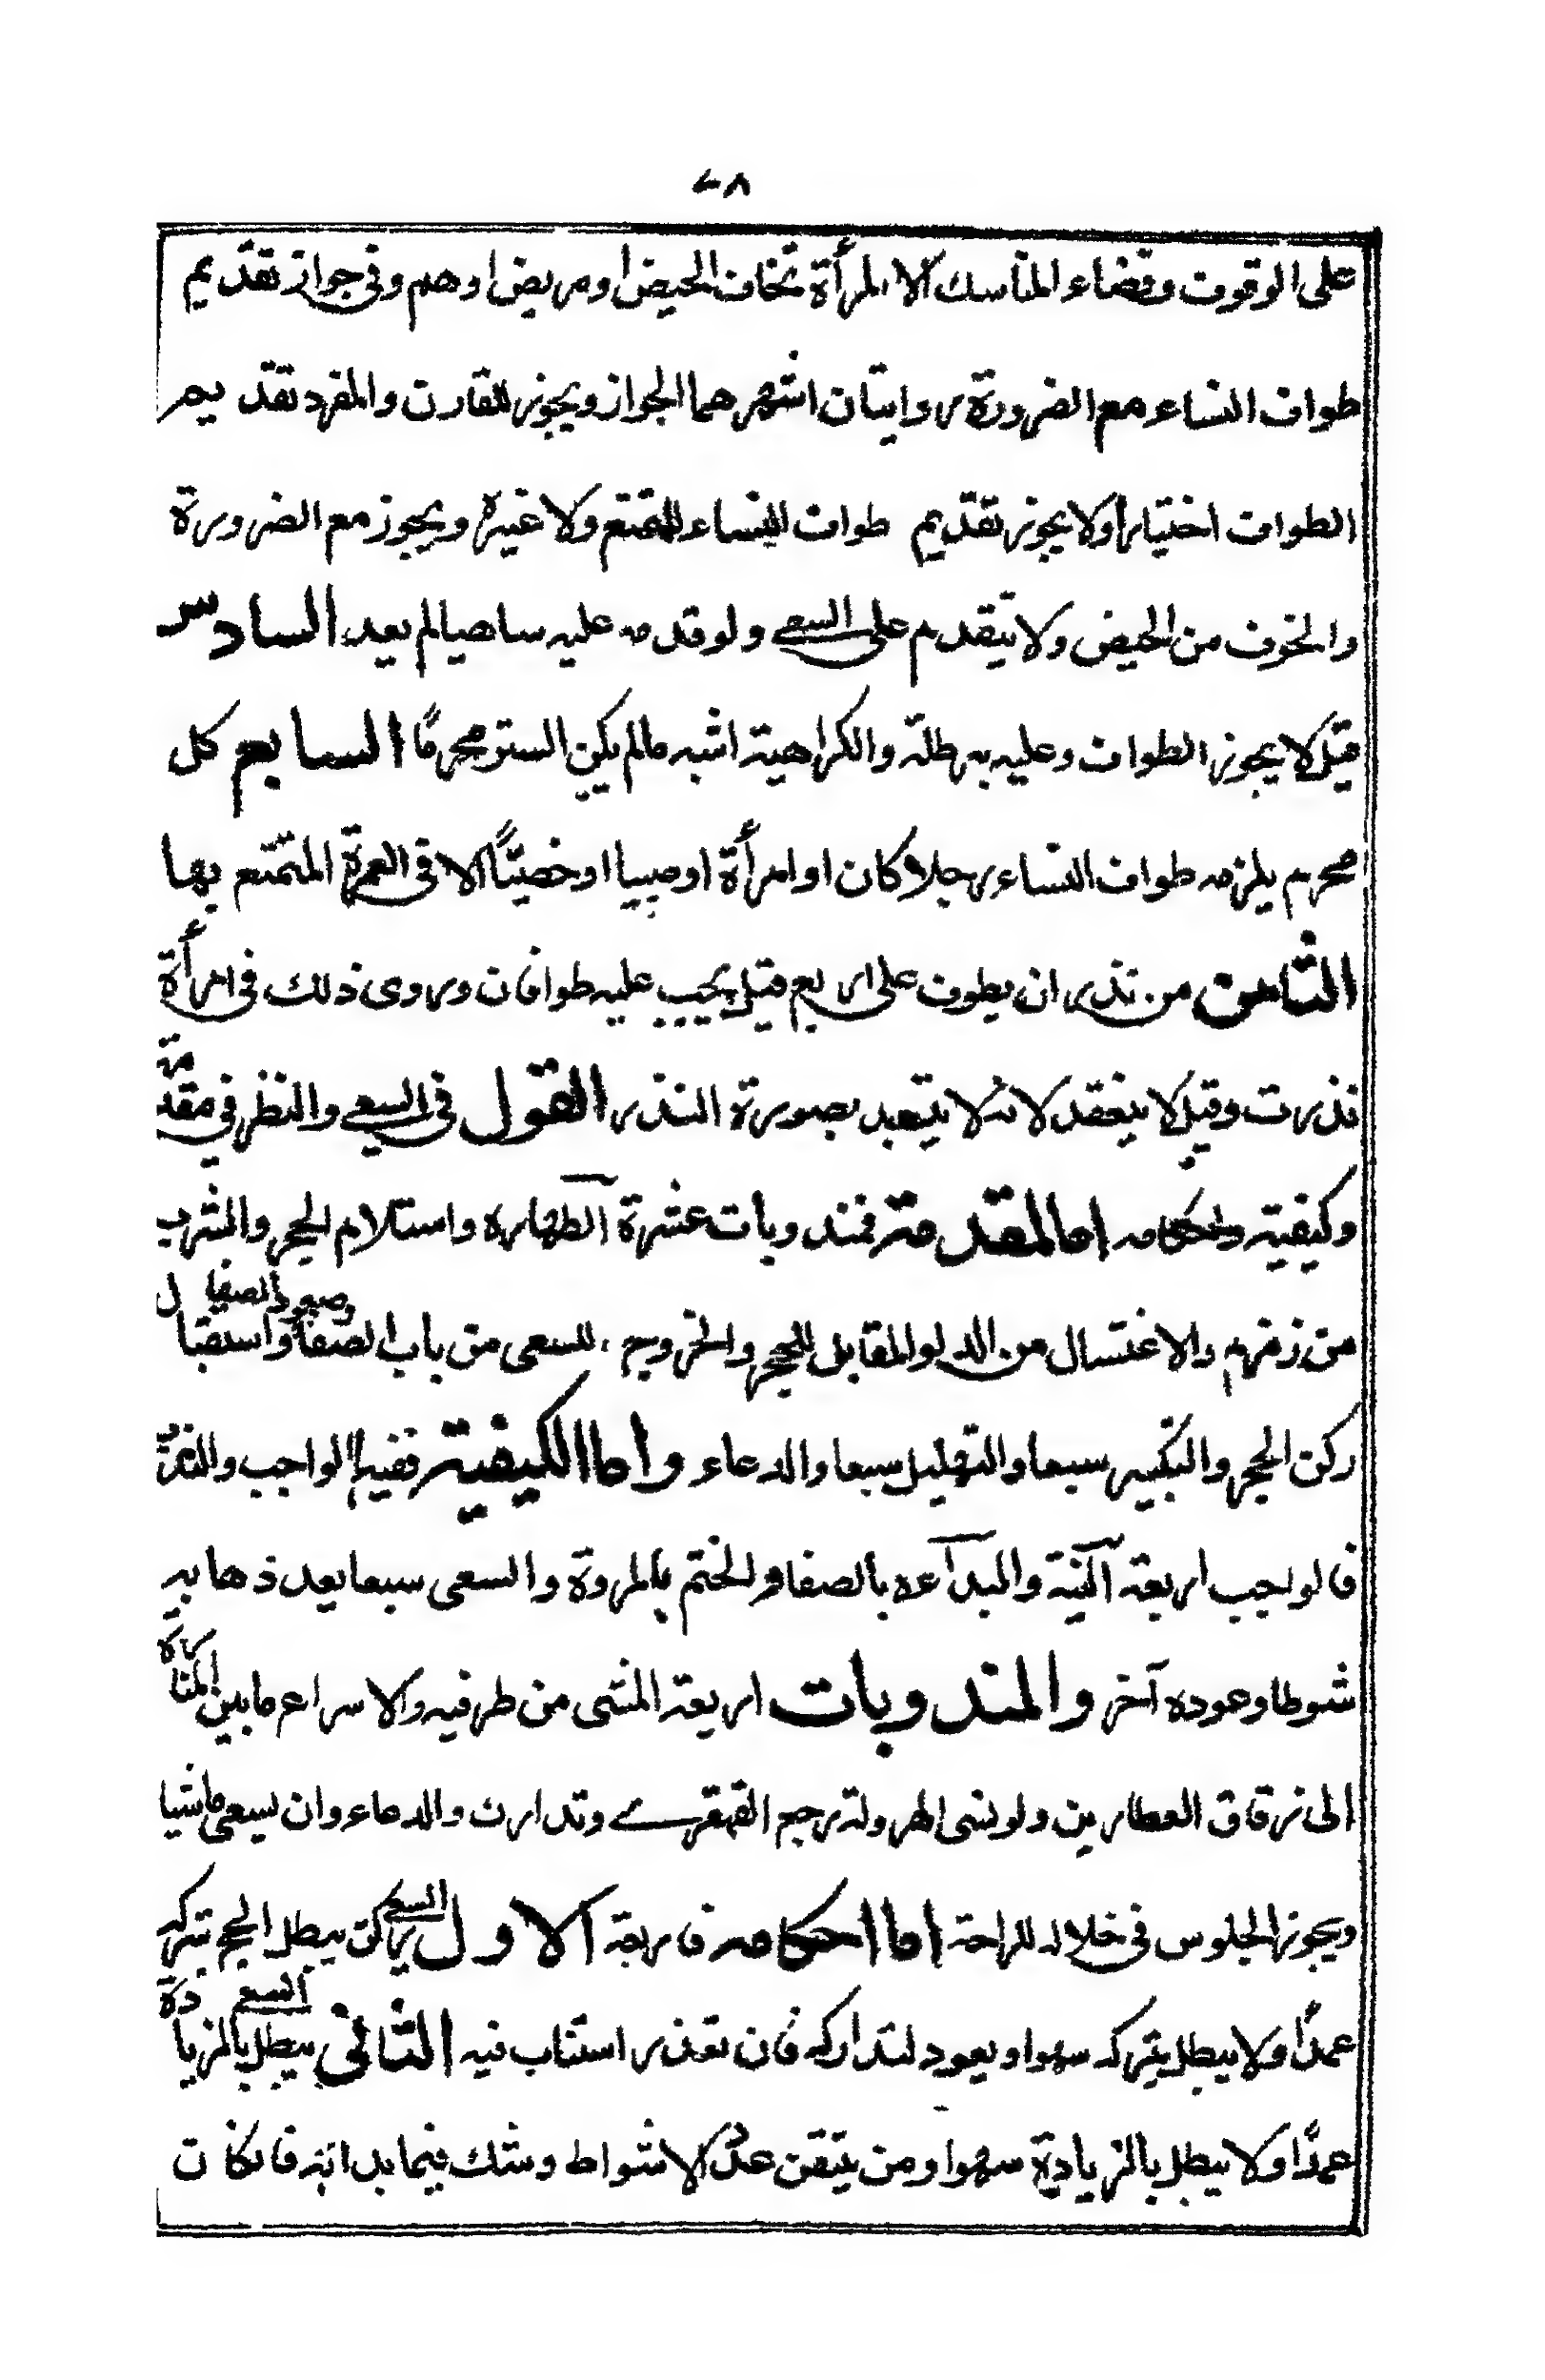 ٧٨
على الوقوف وقضاء المناسك الا المرأة تخاف الحيض او مريض او هم وفى جواز تقديم
طواف النساء مع الضرورة روايتان اشهرهما الجواز ويجوز للقارن والمفرد تقديم
الطواف اختيارا ولا يجوز تقديم طواف النساء للمتمتع ولا غيره ويجوز مع الضرورة
والخوف من الحيض ولا يتقدم على السعي ولو قدمه عليه ساهيا لم يعد السادس
قيل لا يجوز الطواف وعليه برطلة والكراهية اشبه مالم يكن الستر محرمًا السابع كل
محرم يلزمه طواف النساء رجلا كان او امرأة او صبيا او خصيًّا الا فى العمرة المتمتع بها
الثامن من نذر ان يطوف على اربع قيل يجب عليه طوافان وروى ذلك فى امرأة
نذرت وقيل لا ينعقد لانه لا يتعبد بصورة النذر القول فى السعي والنظر في مقدمته
وكيفيته واحكامه اما المقدمة فمندوبات عشرة الطهاره واستلام الحجر والشرب
من زمزم والاغتسال من الدلو المقابل للحجر والخروج للسعى من باب الصفا وصعود الصفا واستقبال
ركن الحجر والتكبير سبعا والتهليل سبعا والدعاء واما الكيفية ففيها الواجب والندب
فالواجب اربعة النية والبدآءه بالصفا والختم بالمروة والسعى سبعا يعد ذهابه
شوطا وعوده آخر والمندوبات اربعة المشى من طرفيه والاسراع ما بين المناره
الى زقاق العطارين ولو نسى الهرولة رجع القهقرے وتدارك والدعاء وان يسعى ماشيا
ويجوز الجلوس فى خلاله للراحة اما احكامه فاربعة الاول السعي ركن يبطل الحج بتركه
عمدًا ولا يبطل بتركه سهوا ويعود لتداركه فان تعذر استناب فيه الثانى يبطل السعي بالزيادة
عمدًا ولا يبطل بالزيادة سهوا ومن تيقن عدد الاشواط وشك فيما بدا به فان كان